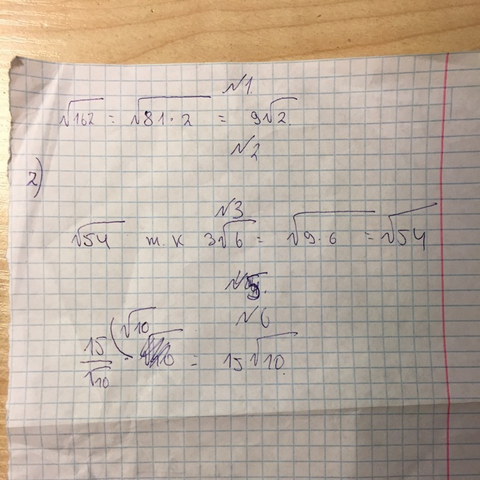 №1
√162 = √81·2 = 9√2.
№2
2)
№3
√54 т.к 3√6 = √9·6 = √54
№6
15/√10 (√10 = 15√10.